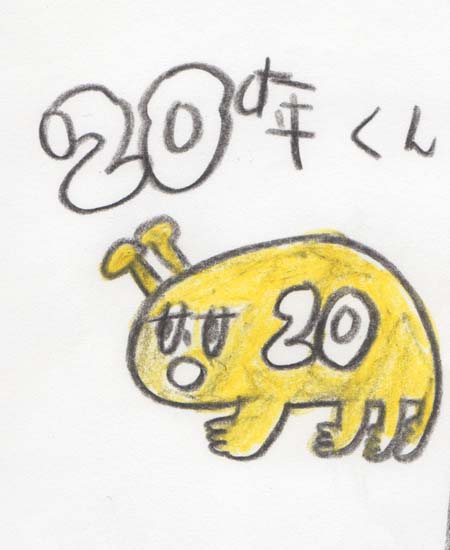 20年くん
20